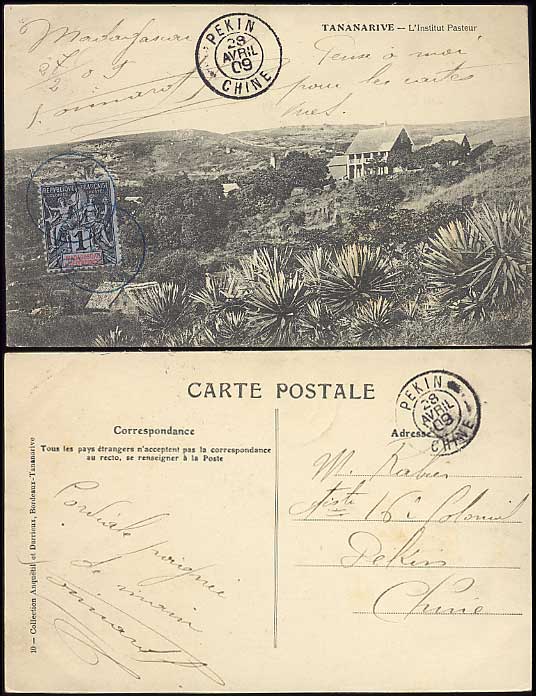 TANANARIVE — L'Institut Pasteur
PEKIN
28
AVRIL
09
CHINE
Madagascar
2/2 09
Pense à moi
pour les cartes
vues.
REPUBLIQUE FRANÇAISE
1
CARTE POSTALE
Correspondance
Tous les pays étrangers n'acceptent pas la correspondance
au recto, se renseigner à la Poste
Adresse
PEKIN
28
AVRIL
09
CHINE
Cordiale poignée
de main
M.
16e Colonial
Pékin
Chine
10 — Collection Anquétil et Durrieux, Bordeaux-Tananarive